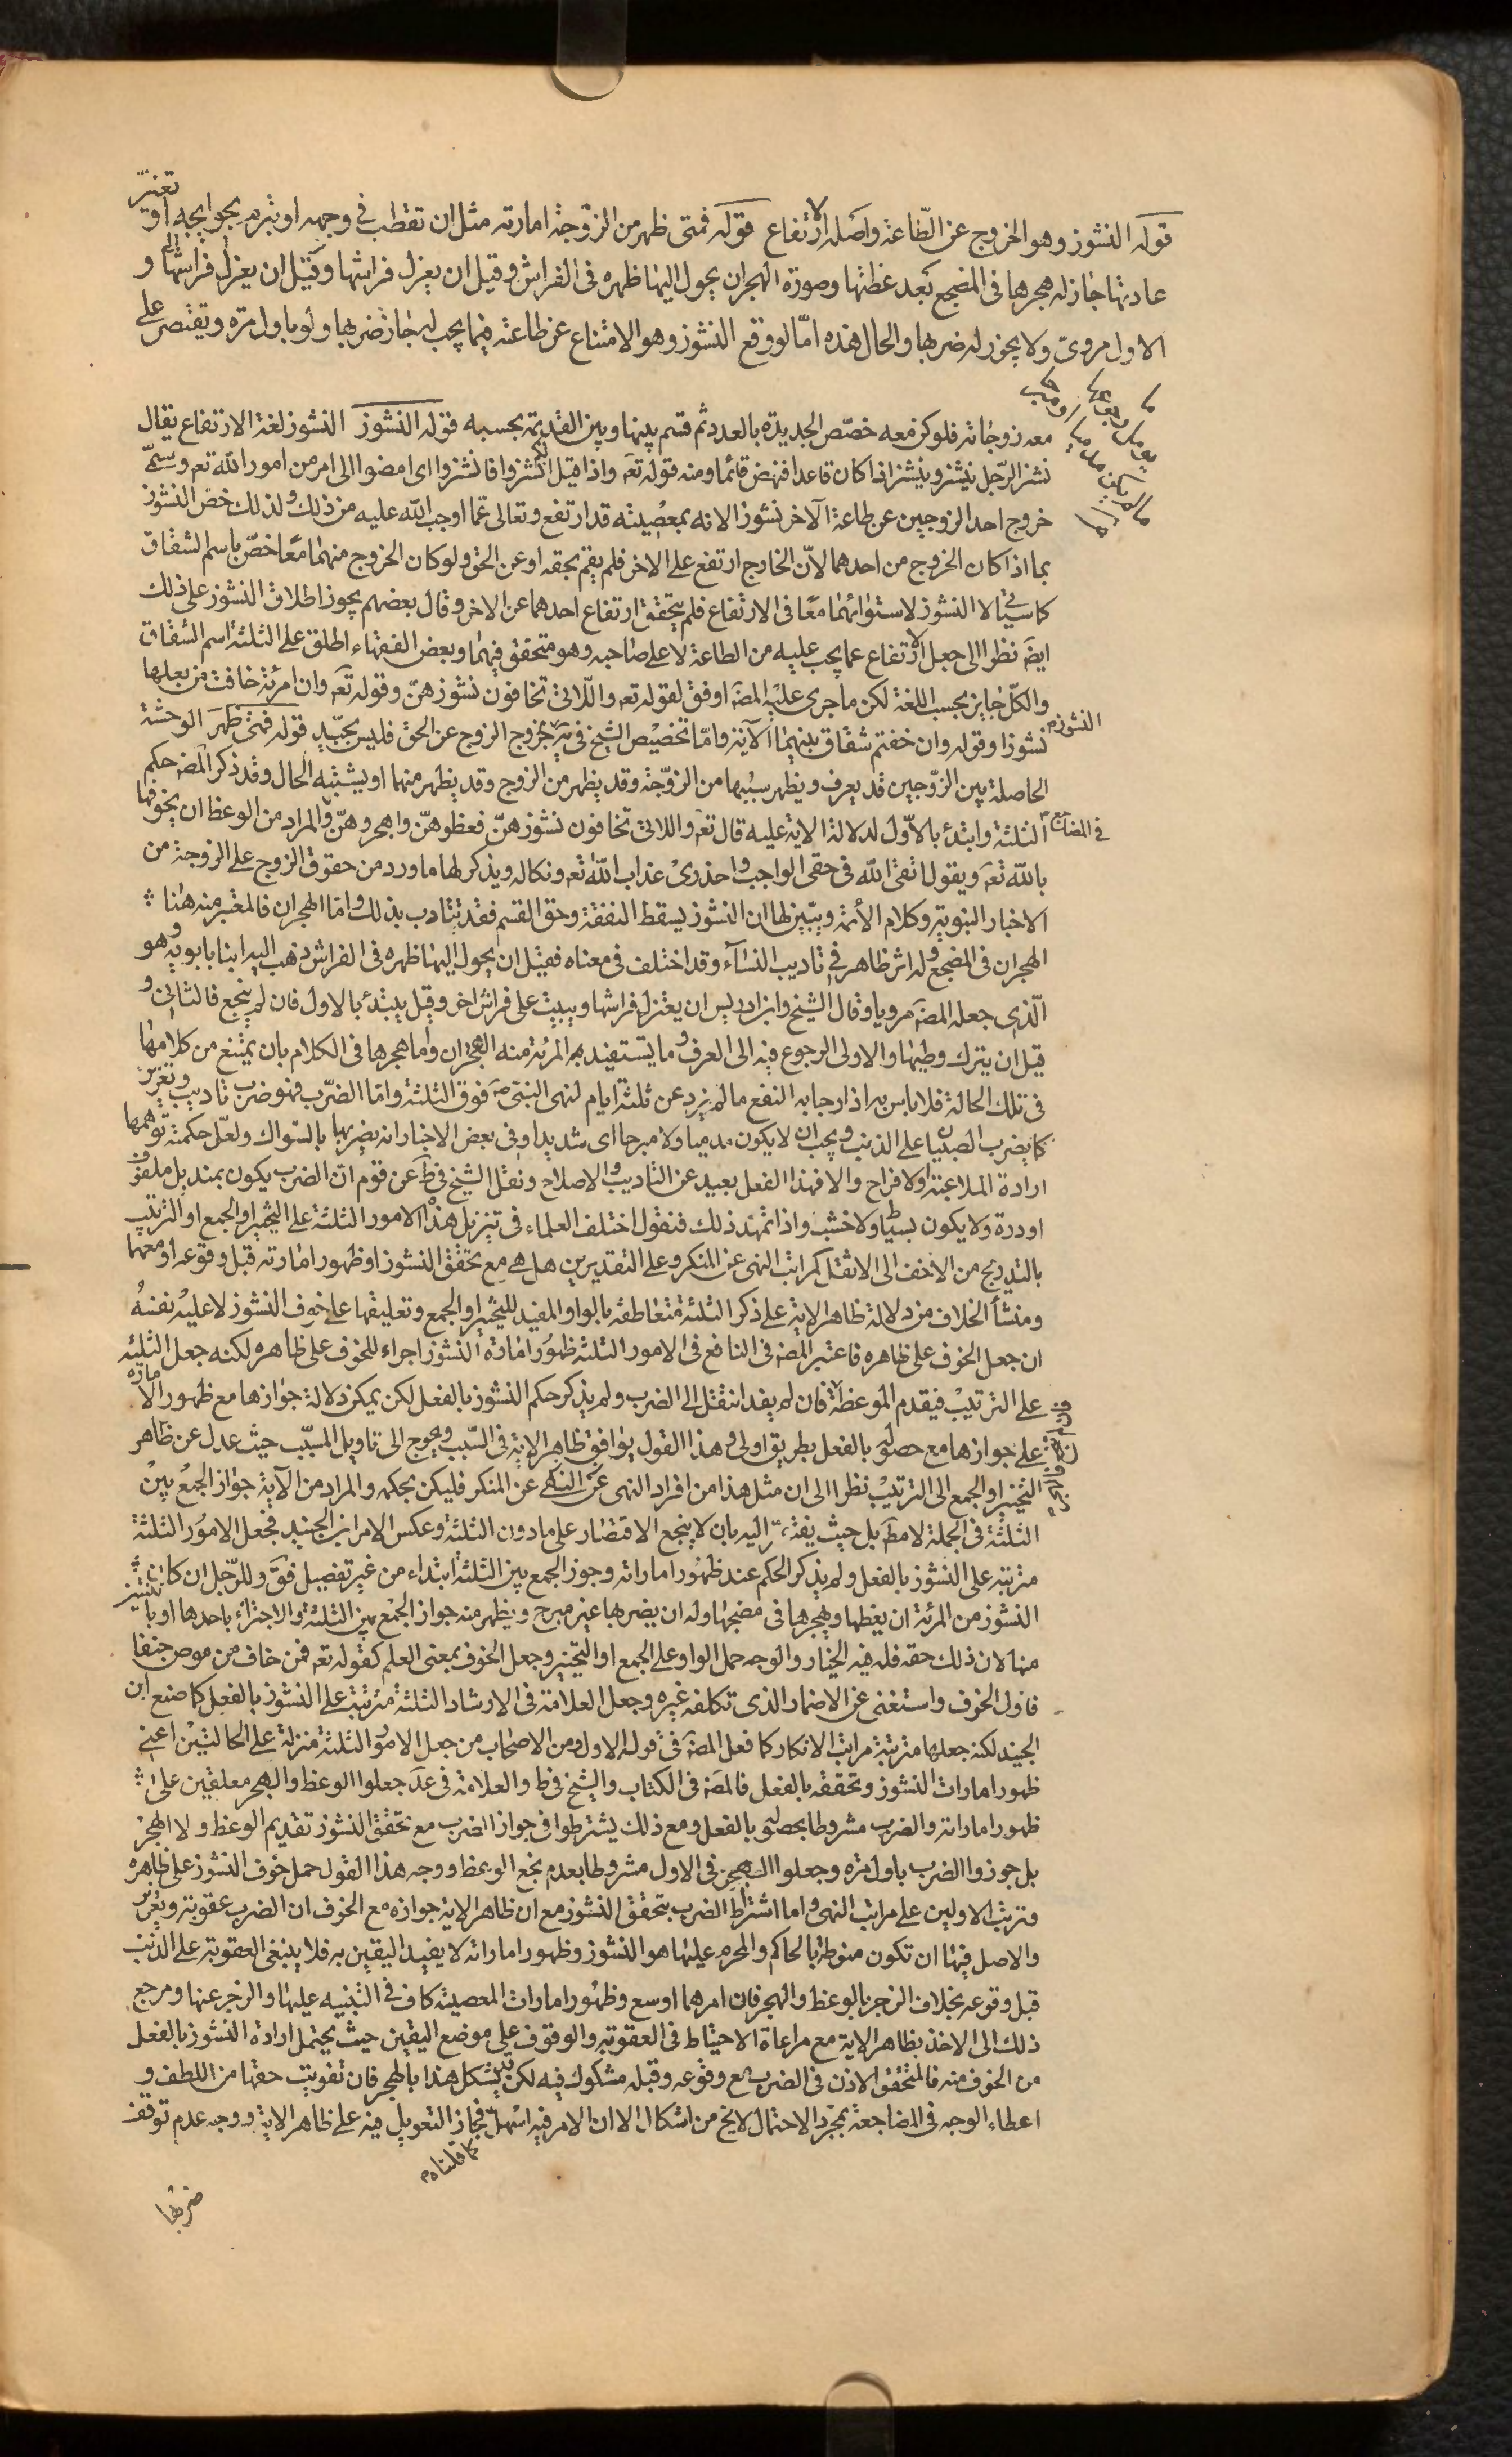 قوله النشوز وهو الخروج عن الطّاعة واصله الارتفاع قوله فمتى ظهر من الزوجة امارته مثل ان تقطب في وجهه او تبرم بحوايجه او تغيّر
عادتها جاز له هجرها فى المضجع بعد عظتها وصورة الهجران يحول اليها ظهره فى الفراش وقيل ان يعزل فراشها وقيل ان يعزل فراشها و
الاول مروى ولا يجوز له ضربها والحال هذه امّا لو وقع النشوز وهو الامتناع عن طاعته فيما يجب له جاز ضربها ولو باول مرة ويقتصر على
ما يؤمل معه رجوعها
ما لم يكن
معه زوجاته فلو كن معه خصّص الجديدة بالعدد ثم قسم بينها وبين القديمة بحسبه قوله النشوز النشوز لغة الارتفاع يقال
نشز الرّجل ينشز وينشز اذا كان قاعدا فنهض قائما ومنه قوله تعه واذا قيل انشزوا فانشزوا اى امضوا الى امر من امور الله تعه وسمّى
خروج احد الزوجين عن طاعة الآخر نشوزا لانه بمعصيته قد ارتفع وتعالى عما اوجب الله عليه من ذلك ولذلك خص النشوز
بما اذا كان الخروج من احدهما لانّ الخارج ارتفع على الاخر فلم يقم بحقه او عن الحق ولو كان الخروج منهما معًا خصّ باسم الشقاق
كما سيأتي لا النشوز لاستوائهما معًا فى الارتفاع فلم يتحقق ارتفاع احدهما عن الاخر وقال بعضهم يجوز اطلاق النشوز على ذلك
ايضَ نظرا الى جعل الارتفاع عما يجب عليه من الطاعة لا على صاحبه وهو متحقق فيهما وبعض الفقهاء اطلق على الثلثة اسم الشقاق
والكلّ جايز بحسب اللغة لكن ما جرى عليه المصَ اوفق لقوله تعه واللّاتى تخافون نشوزهنّ وقوله تعه وان امرئة خافت من بعلها
نشوزا وقوله وان خفتم شقاق بينهما الآية وامّا تخصيص الشيخ فى يَه النشوز بخروج الزوج عن الحق فليس بجيّد قوله فمتى ظهر الوحشة
الحاصلة بين الزوّجين قد يعرف ويظهر سببها من الزوّجة وقد يظهر من الزوج وقد يظهر منهما او يشتبه الحال وقد ذكر المصَ حكم
الثلثة وابتدء بالاوّل لدلالة الاية عليه قال تعه واللاتى تخافون نشوزهنّ فعظوهنّ واهجروهنّ فى المضاجع والمراد من الوعظ ان يخوفها
بالله تعه ويقول اتقى الله فى حقى الواجب واحذرى عذاب الله تعه ونكاله ويذكر لها ما ورد من حقوق الزوج على الزوجة من
الاخبار النبوية وكلام الأئمة ويبيّن لها ان النشوز يسقط النفقة وحق القسم فقد تتادب بذلك وامّا الهجران فالمعتبر منه هنا
الهجران فى المضجع وله اثر ظاهر فى تاديب النسآء وقد اختلف فى معناه فقيل ان يحول اليها ظهره فى الفراش ذهب اليه ابنا بابويه وهو
الّذى جعله المصَ مرويا وقال الشيخ وابن ادريس ان يعتزل فراشها ويبيت على فراش اخر وقيل يبتدئ بالاول فان لم ينجع فالثانى و
قيل ان يترك وطيها والاولى الرجوع فيه الى العرف وما يستفيد به المرئة منه الهجران واما هجرها فى الكلام بان يمتنع من كلامها
فى تلك الحالة فلا باس به اذا رجا به النفع ما لم يزد عن ثلثة ايام لنهى النبى صَ فوق الثلثة وامّا الضّرب فهو ضرب تاديب وتعزير
كما يضرب الصبيان على الذنب ويجب ان لا يكون مدميا ولا مبرحا اى شديدا وفى بعض الاخبار انه يضربها بالسّواك ولعلّ حكمته توهمها
ارادة الملاعبة او الافراح والا فهذا الفعل بعيد عن التاديب والاصلاح ونقل الشيخ فى ط عن قوم انّ الضرب يكون بمنديل ملفوف
او درة ولا يكون بسياط ولا خشب واذا تمهّد ذلك فنقول اختلف العلماء فى تنزيل هذه الامور الثلثة على التخيير او الجمع او الترتيب
بالتدريج من الاخف الى الاثقل كمراتب النهى عن المنكر وعلى التقديرين هل هى مع تحقق النشوز او ظهور امارته قبل وقوعه او معهما
ومنشأ الخلاف من دلالة ظاهر الاية على ذكر الثلثة متعاطفة بالواو المفيد للتخيير او الجمع وتعليقها على خوف النشوز لا عليه نفسه
ان جعل الخوف على ظاهره فاعتبر المصَ فى النافع فى الامور الثلثة ظهور امارة النشوز اجراء للخوف على ظاهره لكنه جعل الثلثة
على الترتيب فيقدم الموعظة فان لم يفد انتقل الى الضرب ولم يذكر حكم النشوز بالفعل لكن يمكن دلالة جوازها مع ظهور الامارة
على جوازها مع حصوله بالفعل بطريق اولى وهذا القول يوافق ظاهر الاية فى السّبب ويحوج الى تاويل المسبّب حيث عدل عن ظاهر
التخيير او الجمع الى الترتيب نظرا الى ان مثل هذا من افراد النهى عن المنكر فليكن بحكمه والمراد من الآية جواز الجمع بين
الثلثة فى الجملة لا مطَ بل حيث يفتقر اليه بان لا ينجع الاقتصار على ما دون الثلثة وعكس الامر ابن الجنيد فجعل الامور الثلثة
مترتبه على النشوز بالفعل ولم يذكر الحكم عند ظهور اماراته وجوز الجمع بين الثلثة ابتداء من غير تفصيل فقَ وللرّجل ان كان
النشوز من المرئة ان يعظها ويهجرها فى مضجعها وله ان يضربها غير مبرح ويظهر منه جواز الجمع بين الثلثة والاجتزاء باحدها او باثنتين
منها لان ذلك حقه فله فيه الخيار والوجه حمل الواو على الجمع او التخيير وجعل الخوف بمعنى العلم كقوله تعه فمن خاف من موص جنفا
فاول الخوف واستغنى عن الاضمار الذى تكلفه غيره وجعل العلامة فى الارشاد الثلثة مترتبة على النشوز بالفعل كما صنع ابن
الجنيد لكنه جعلها مترتبة مراتب الانكار كما فعل المصَ فى قوله الاول ومن الاصحاب من جعل الامور الثلثة منزلة على الحالتين اعنى
ظهور امارات النشوز وتحققه بالفعل فالمصَ فى الكتاب والشيخ فى ط والعلامة فى عد جعلوا الوعظ والهجر معلقين على
ظهور اماراته والضرب مشروطا بحصوله بالفعل ومع ذلك يشترطوا فى جواز الضرب مع تحقق النشوز تقديم الوعظ ولا الهجر
بل جوزوا الضرب باول مرة وجعلوا الهجر فى الاول مشروطا بعدم نجع الوعظ ووجه هذا القول حمل خوف النشوز على ظاهره
وترتيب الاولين على مراتب النهى واما اشتراط الضرب بتحقق النشوز مع ان ظاهر الاية جوازه مع الخوف ان الضرب عقوبة وتعزير
والاصل فيها ان تكون منوطة بالحاكم والمحرم عليها هو النشوز وظهور اماراته لا يفيد اليقين به فلا ينبغى العقوبة على الذنب
قبل وقوعه بخلاف الزجر بالوعظ والهجر فان امرهما اوسع وظهور امارات المعصية كاف فى التنبيه عليها والزجر عنها ومرجع
ذلك الى الاخذ بظاهر الاية مع مراعاة الاحتياط فى العقوبة والوقوف على موضع اليقين حيث يحتمل ارادة النشوز بالفعل
من الخوف منه فالمتحقق الاذن فى الضرب مع وقوعه وقبله مشكوك فيه لكن يشكل هذا بالهجر فان تفويت حقها من اللطف و
اعطاء الوجه فى المضاجعة بمجرّد الاحتمال لا يخ من اشكال الا ان الامر فيه اسهل فجاز التعويل فيه على ظاهر الاية كما قلناه ووجه عدم توقف
ضربها